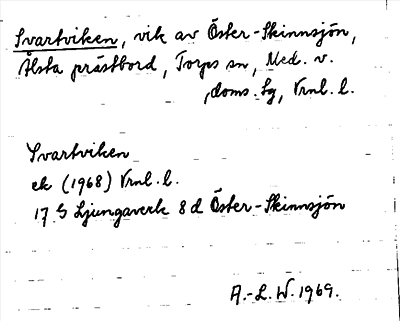 Svartviken, vik av Öster-Skinnsjön,
Ålsta prästbord, Torps sn, Med. v.
doms. tg, Vrnl. l.
Svartviken
ek (1968) Vrnl. l.
17 G Ljungaverk 8 d Öster-Skinnsjön
A.-L. W. 1969.